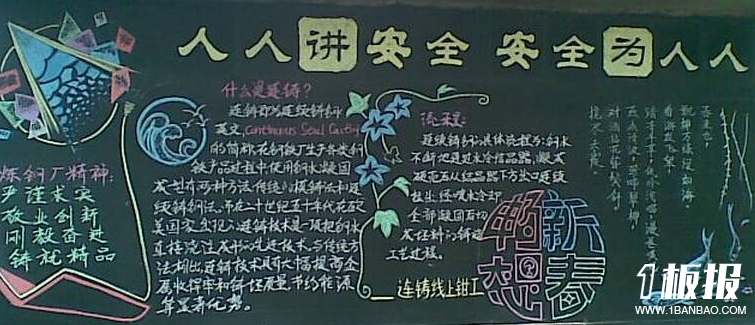 人人讲安全 安全为人人
炼钢厂精神:
严谨求实
敬业创新
刚毅奋进
铸就精品
什么是连铸?
连铸即为连续铸钢
英文,Continuous Steel Casting
的简称,在钢铁厂生产各类钢
铁产品过程中,使用钢水凝固
成型有两种方法,传统的模铸法和连
续铸钢法,而在二十世纪五十年代在欧
美国家出现的连铸技术是一项把钢水
直接浇注成形的先进技术,与传统方
法相比,连铸技术具有大幅提高金
属收得率和铸坯质量,节约能源
等显著优势。
流程:
连续铸钢的具体流程为:钢水
不断地通过水冷结晶器,凝成
硬壳后从结晶器下方出口连续
拉出,经喷水冷却
全部凝固后切
成坯料的铸造
工艺过程。
连铸线上钳工
新春
畅想
1板报
WWW.1BANBAO.COM